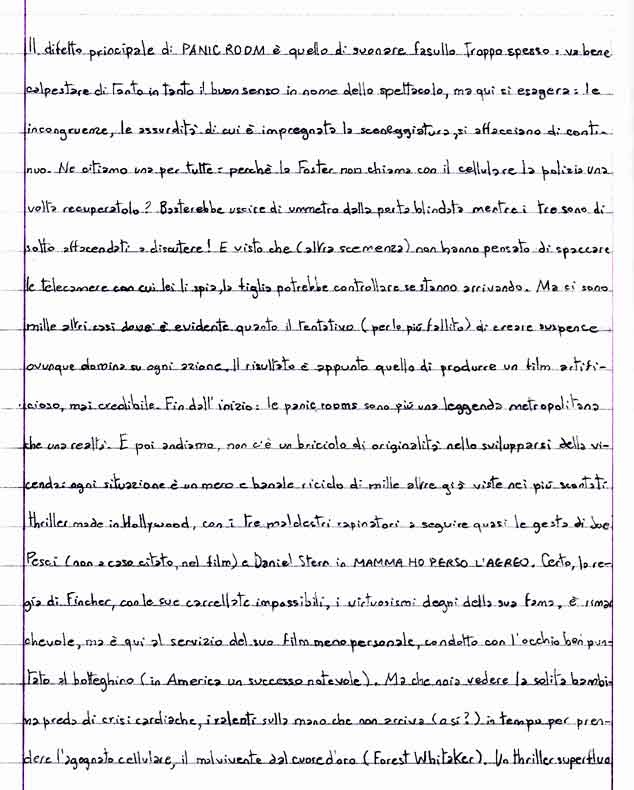 Il difetto principale di PANIC ROOM è quello di suonare fasullo troppo spesso: va bene
calpestare di tanto in tanto il buon senso in nome dello spettacolo, ma qui si esagera: le
incongruenze, le assurdità di cui è impregnata la sceneggiatura, si affacciano di conti-
nuo. Ne citiamo una per tutte: perchè la Foster non chiama con il cellulare la polizia una
volta recuperatolo? Basterebbe uscire di un metro dalla porta blindata mentre i tre sono di
sotto affacendati a discutere! E visto che (altra scemenza) non hanno pensato di spaccare
le telecamere con cui lei li spia, la figlia potrebbe controllare se stanno arrivando. Ma ci sono
mille altri casi dove è evidente quanto il tentativo (per lo più fallito) di creare suspence
ovunque domina su ogni azione. Il risultato è appunto quello di produrre un film artifi-
cioso, mai credibile. Fin dall'inizio: le panic rooms sono più una leggenda metropolitana
che una realtà. E poi andiamo, non c'è un briciolo di originalità nello svilupparsi della vi-
cenda: ogni situazione è un mero e banale riciclo di mille altre già viste nei più scontati
thriller made in Hollywood, con i tre maldestri rapinatori a seguire quasi le gesta di Joe
Pesci (non a caso citato, nel film) e Daniel Stern in MAMMA HO PERSO L'AEREO. Certo, la re-
gia di Fincher, con le sue carrellate impossibili, i virtuosismi degni della sua fama, è rimar
chevole, ma è qui al servizio del suo film meno personale, condotto con l'occhio ben pun-
tato al botteghino (in America un successo notevole). Ma che noia vedere la solita bambi-
na preda di crisi cardiache, i ralenti sulla mano che non arriva (o sì?) in tempo per pren-
dere l'agognato cellulare, il malvivente dal cuore d'oro (Forest Whitaker). Un thriller superfluo